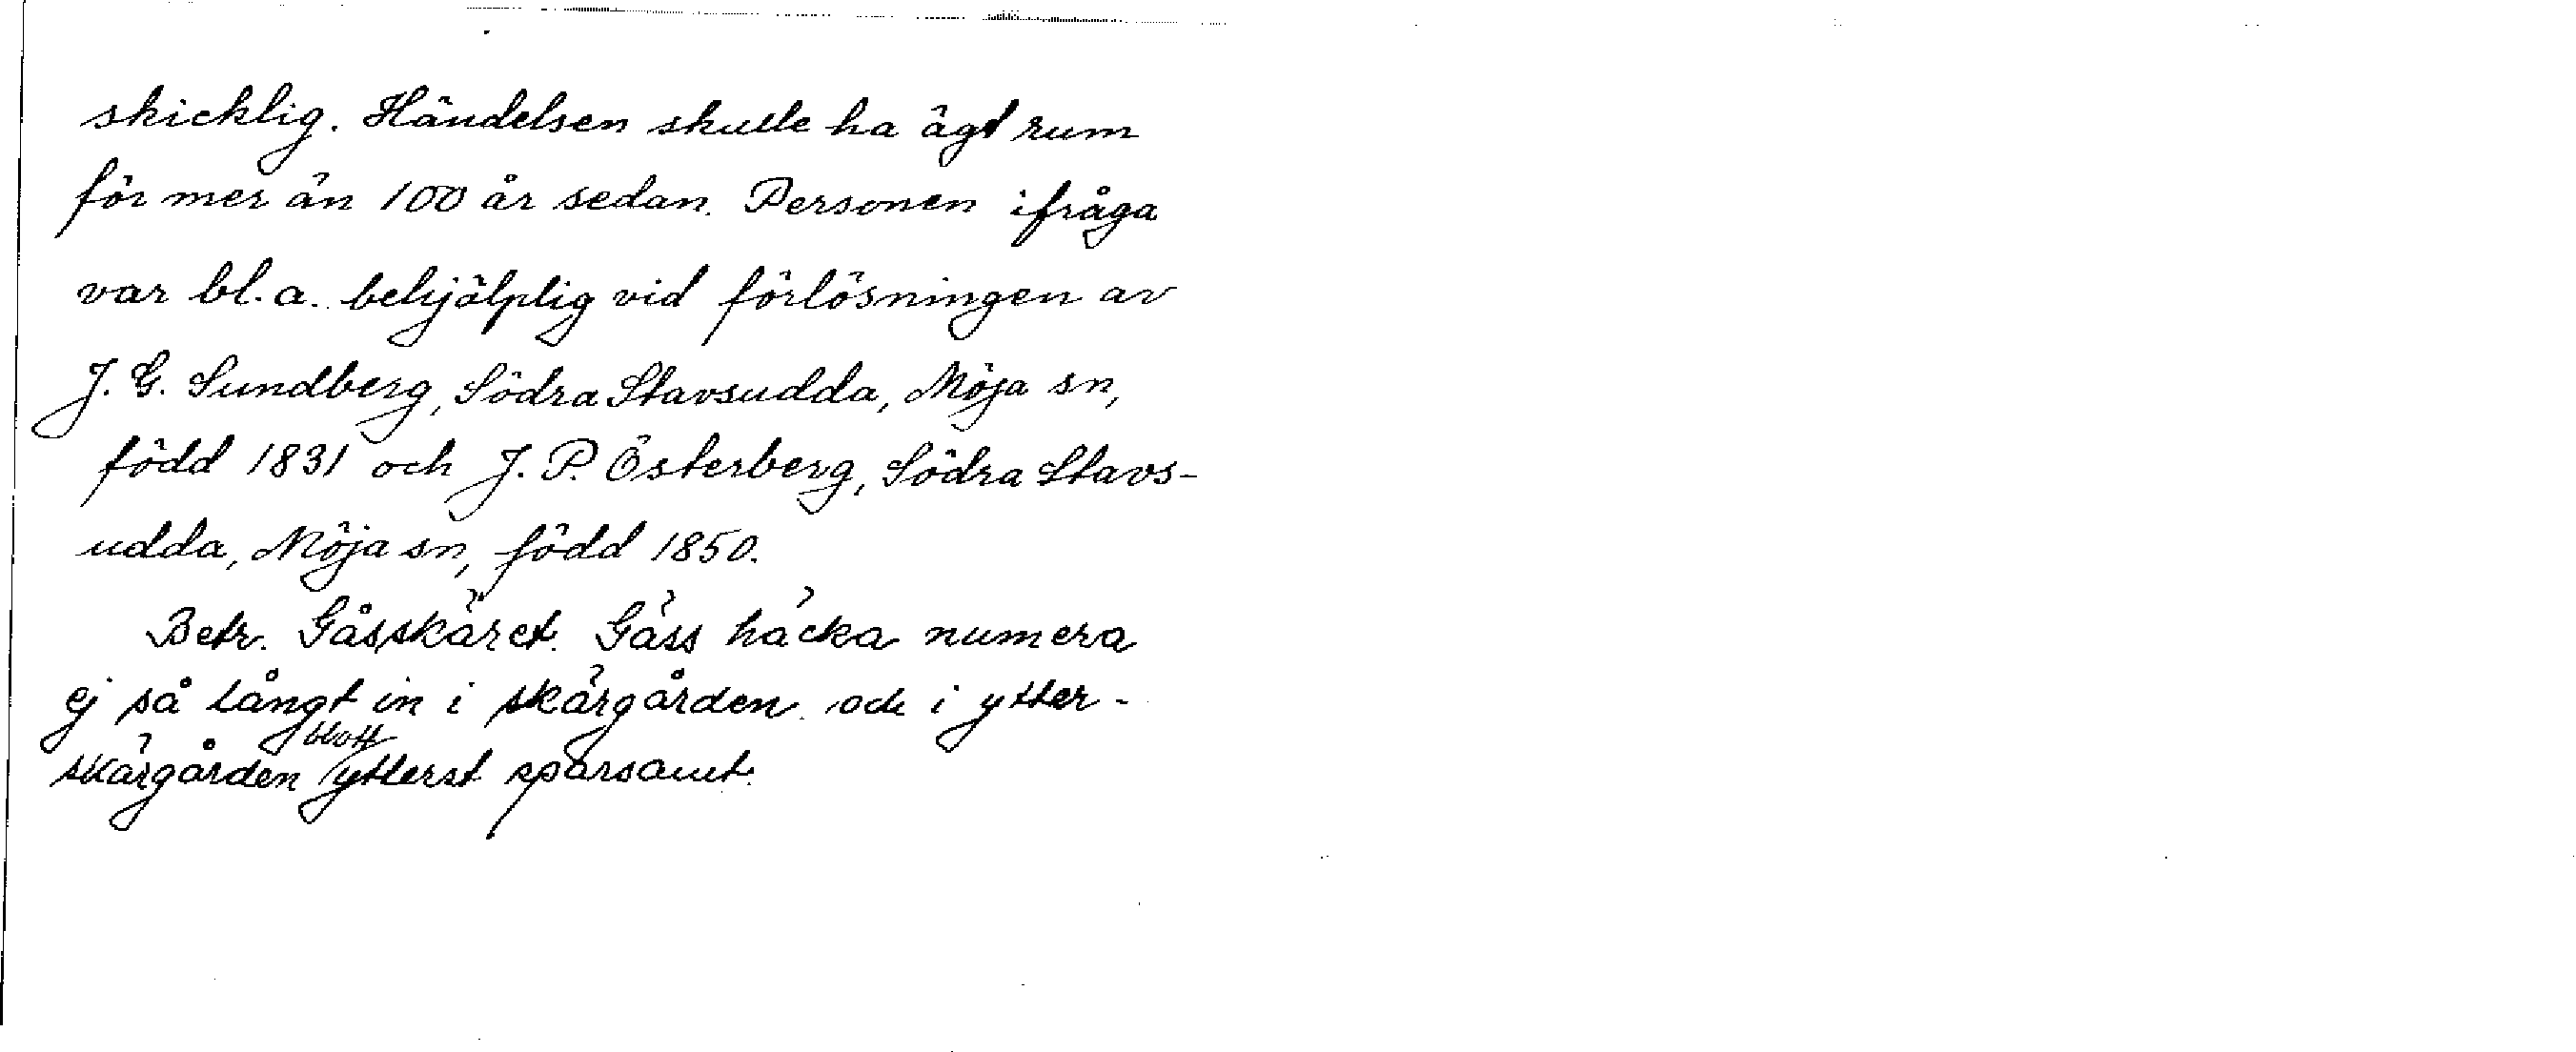 skicklig. Händelsen skulle ha ägt rum
för mer än 100 år sedan. Personen ifråga
var bl. a. behjälplig vid förlösningen av
J. G. Sundberg, Södra Stavsudda, Möja sn,
född 1831 och J. P. Österberg, Södra Stavs-
udda, Möja sn, född 1850.
Betr. Gåsskäret. Gäss häcka numera
ej så långt in i skärgården och i ytter-
skärgården blott ytterst sparsamt.